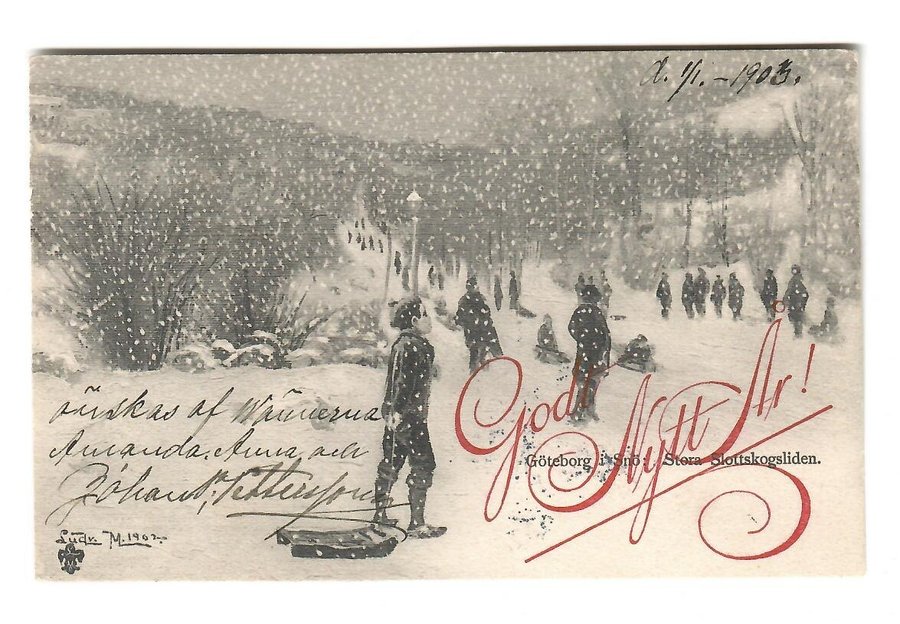 d. 1/1. - 1903.
Godt Nytt År!
Göteborg i Snö. Stora Slottskogsliden.
önskas af Wännerna
Amanda, Anna, och
Johan Pettersson
Ludv. M. 1902.